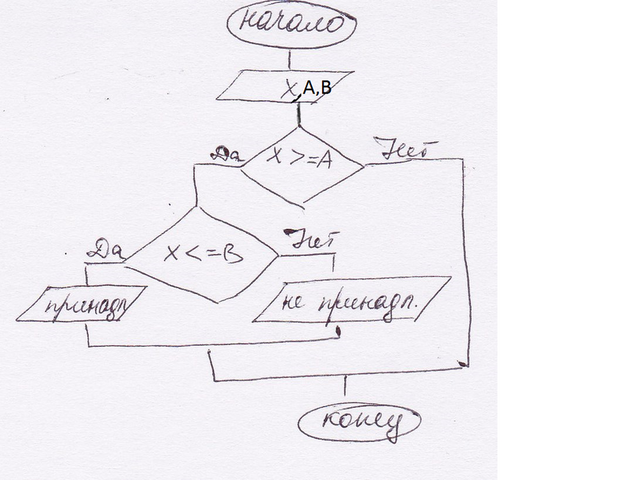 начало
X,A,B
Да
X>=A
Нет
Да
X<=B
Нет
принадл
не принадл.
конец